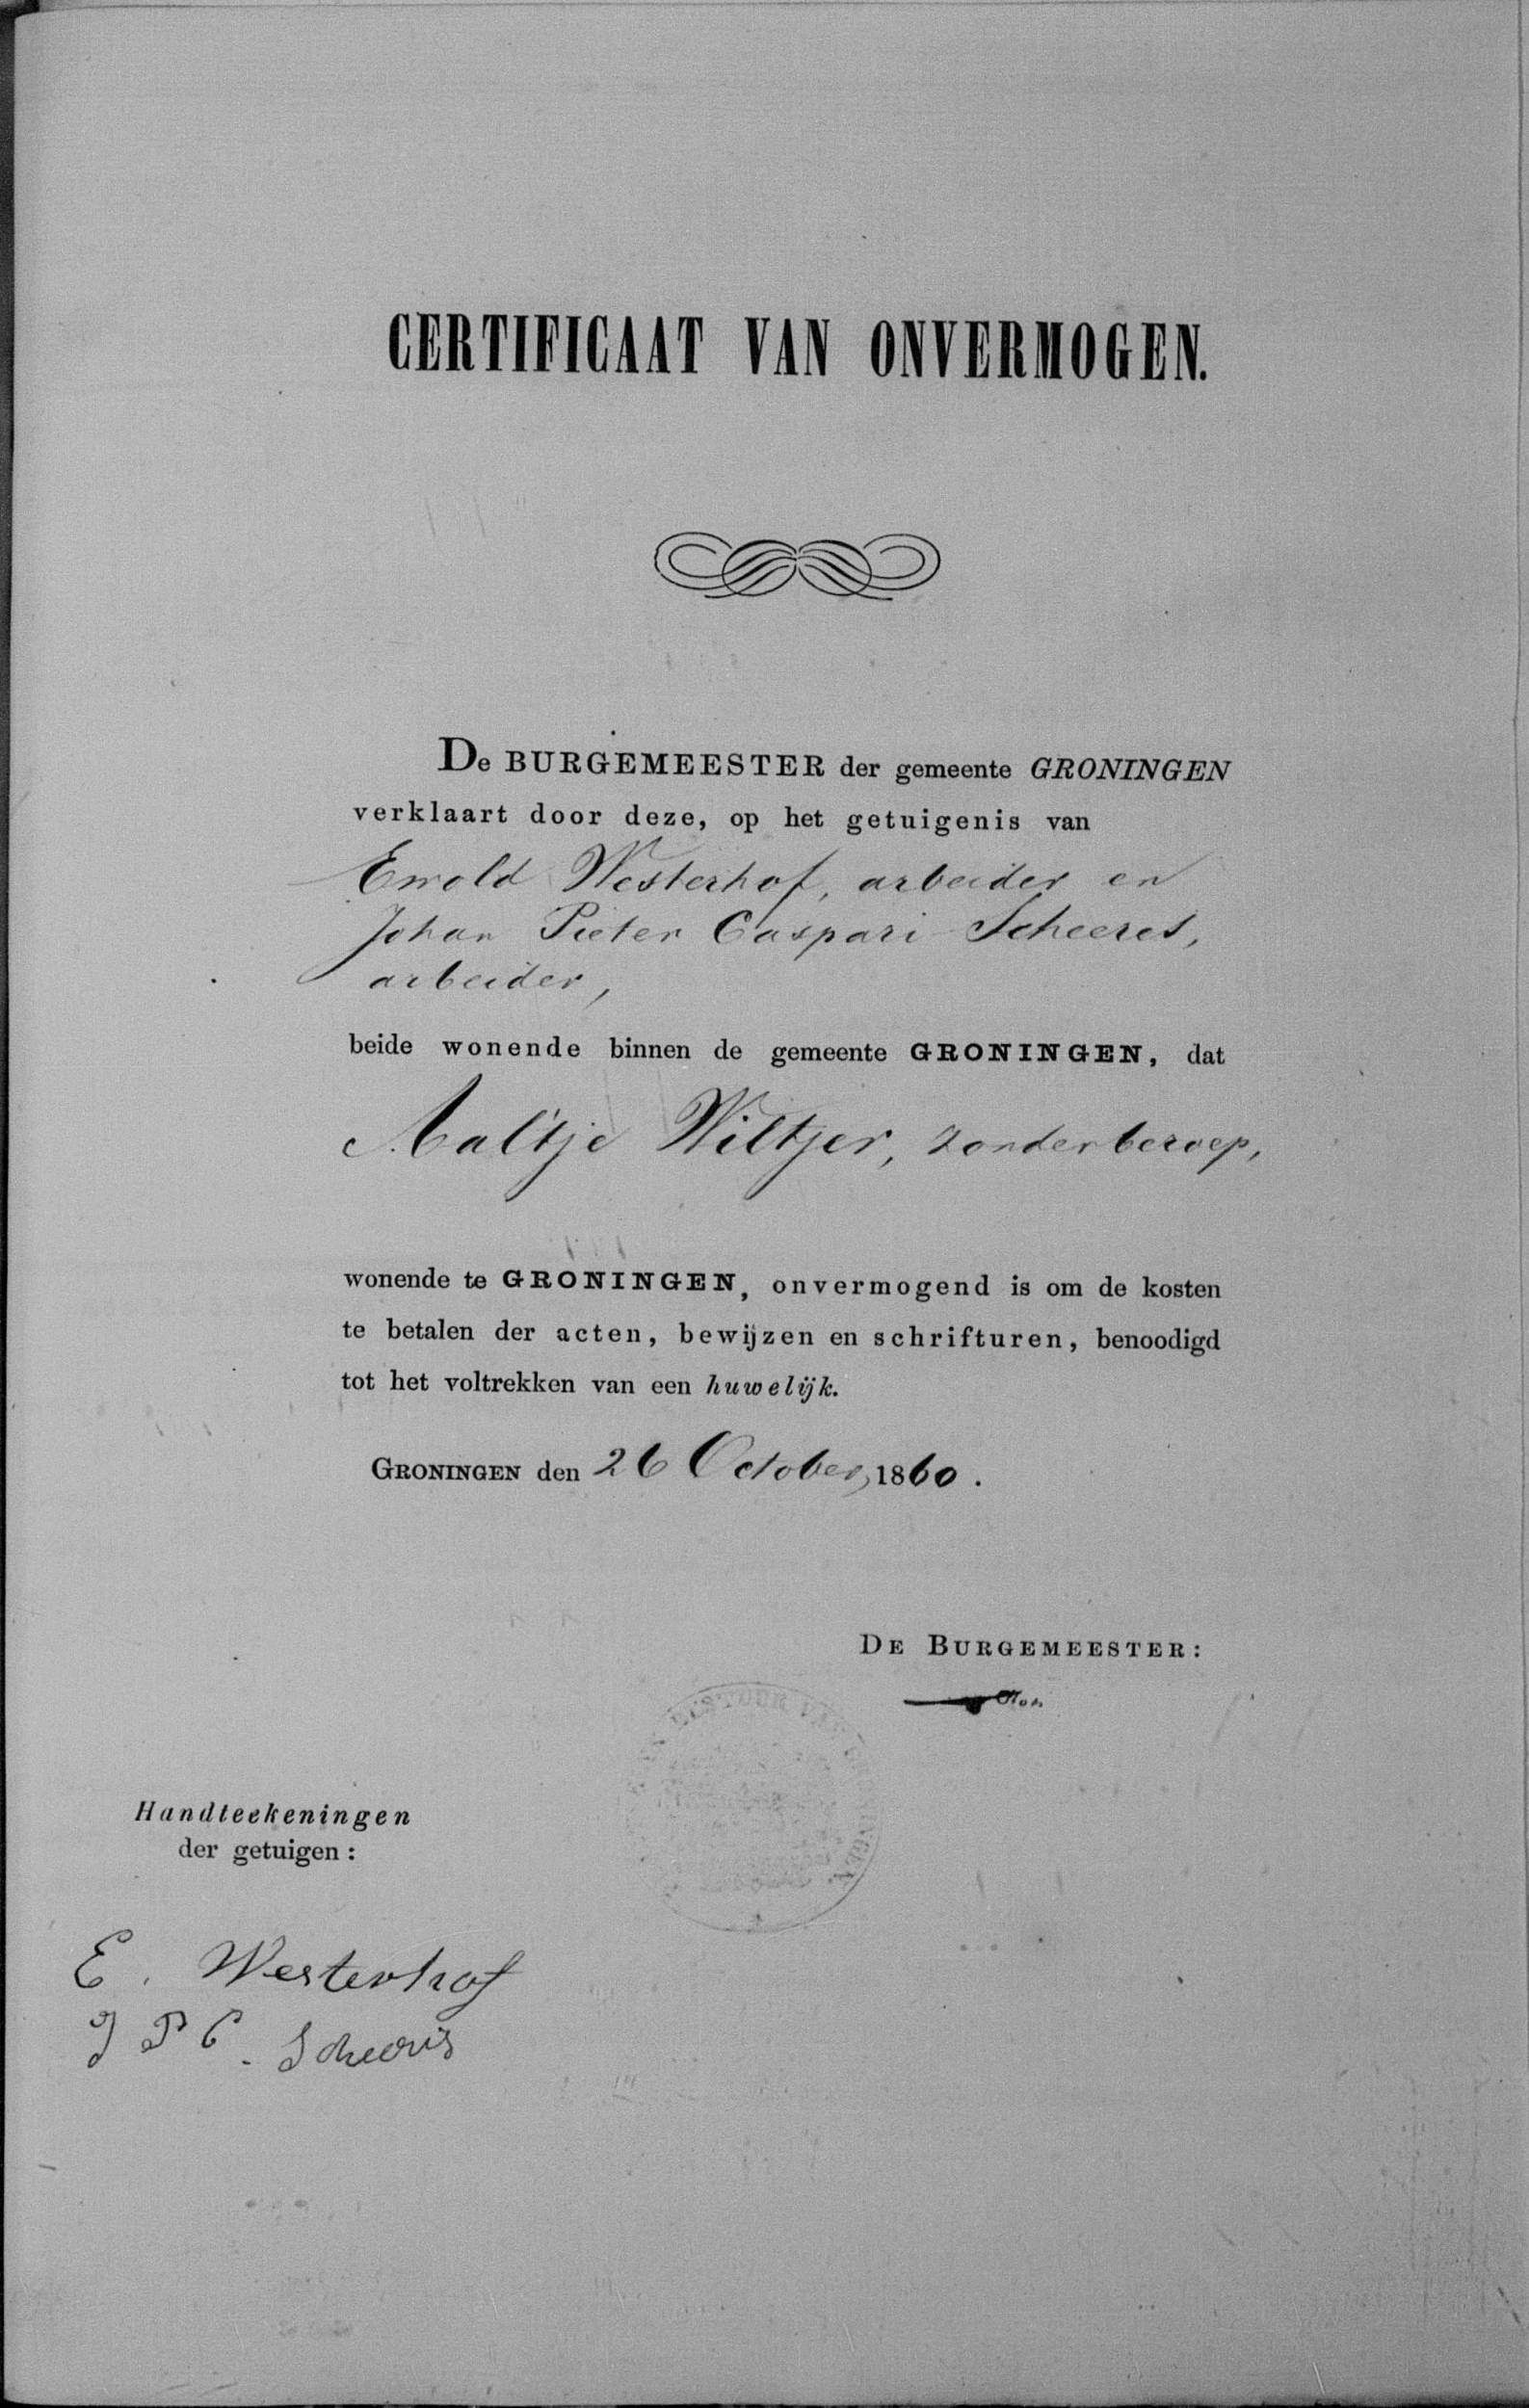 CERTIFICAAT VAN ONVERMOGEN.
De BURGEMEESTER der gemeente GRONINGEN
verklaart door deze, op het getuigenis van
Ewold Westerhof, arbeider en
Johan Pieter Caspari Scheeres,
arbeider,
beide wonende binnen de gemeente GRONINGEN, dat
Aaltje Wiltjer, zonder beroep,
wonende te GRONINGEN, onvermogend is om de kosten
te betalen der acten, bewijzen en schrifturen, benoodigd
tot het voltrekken van een huwelijk.
GRONINGEN den 26 October 1860.
DE BURGEMEESTER:
Handteekeningen
der getuigen:
E. Westerhof
J P C. Scheeris